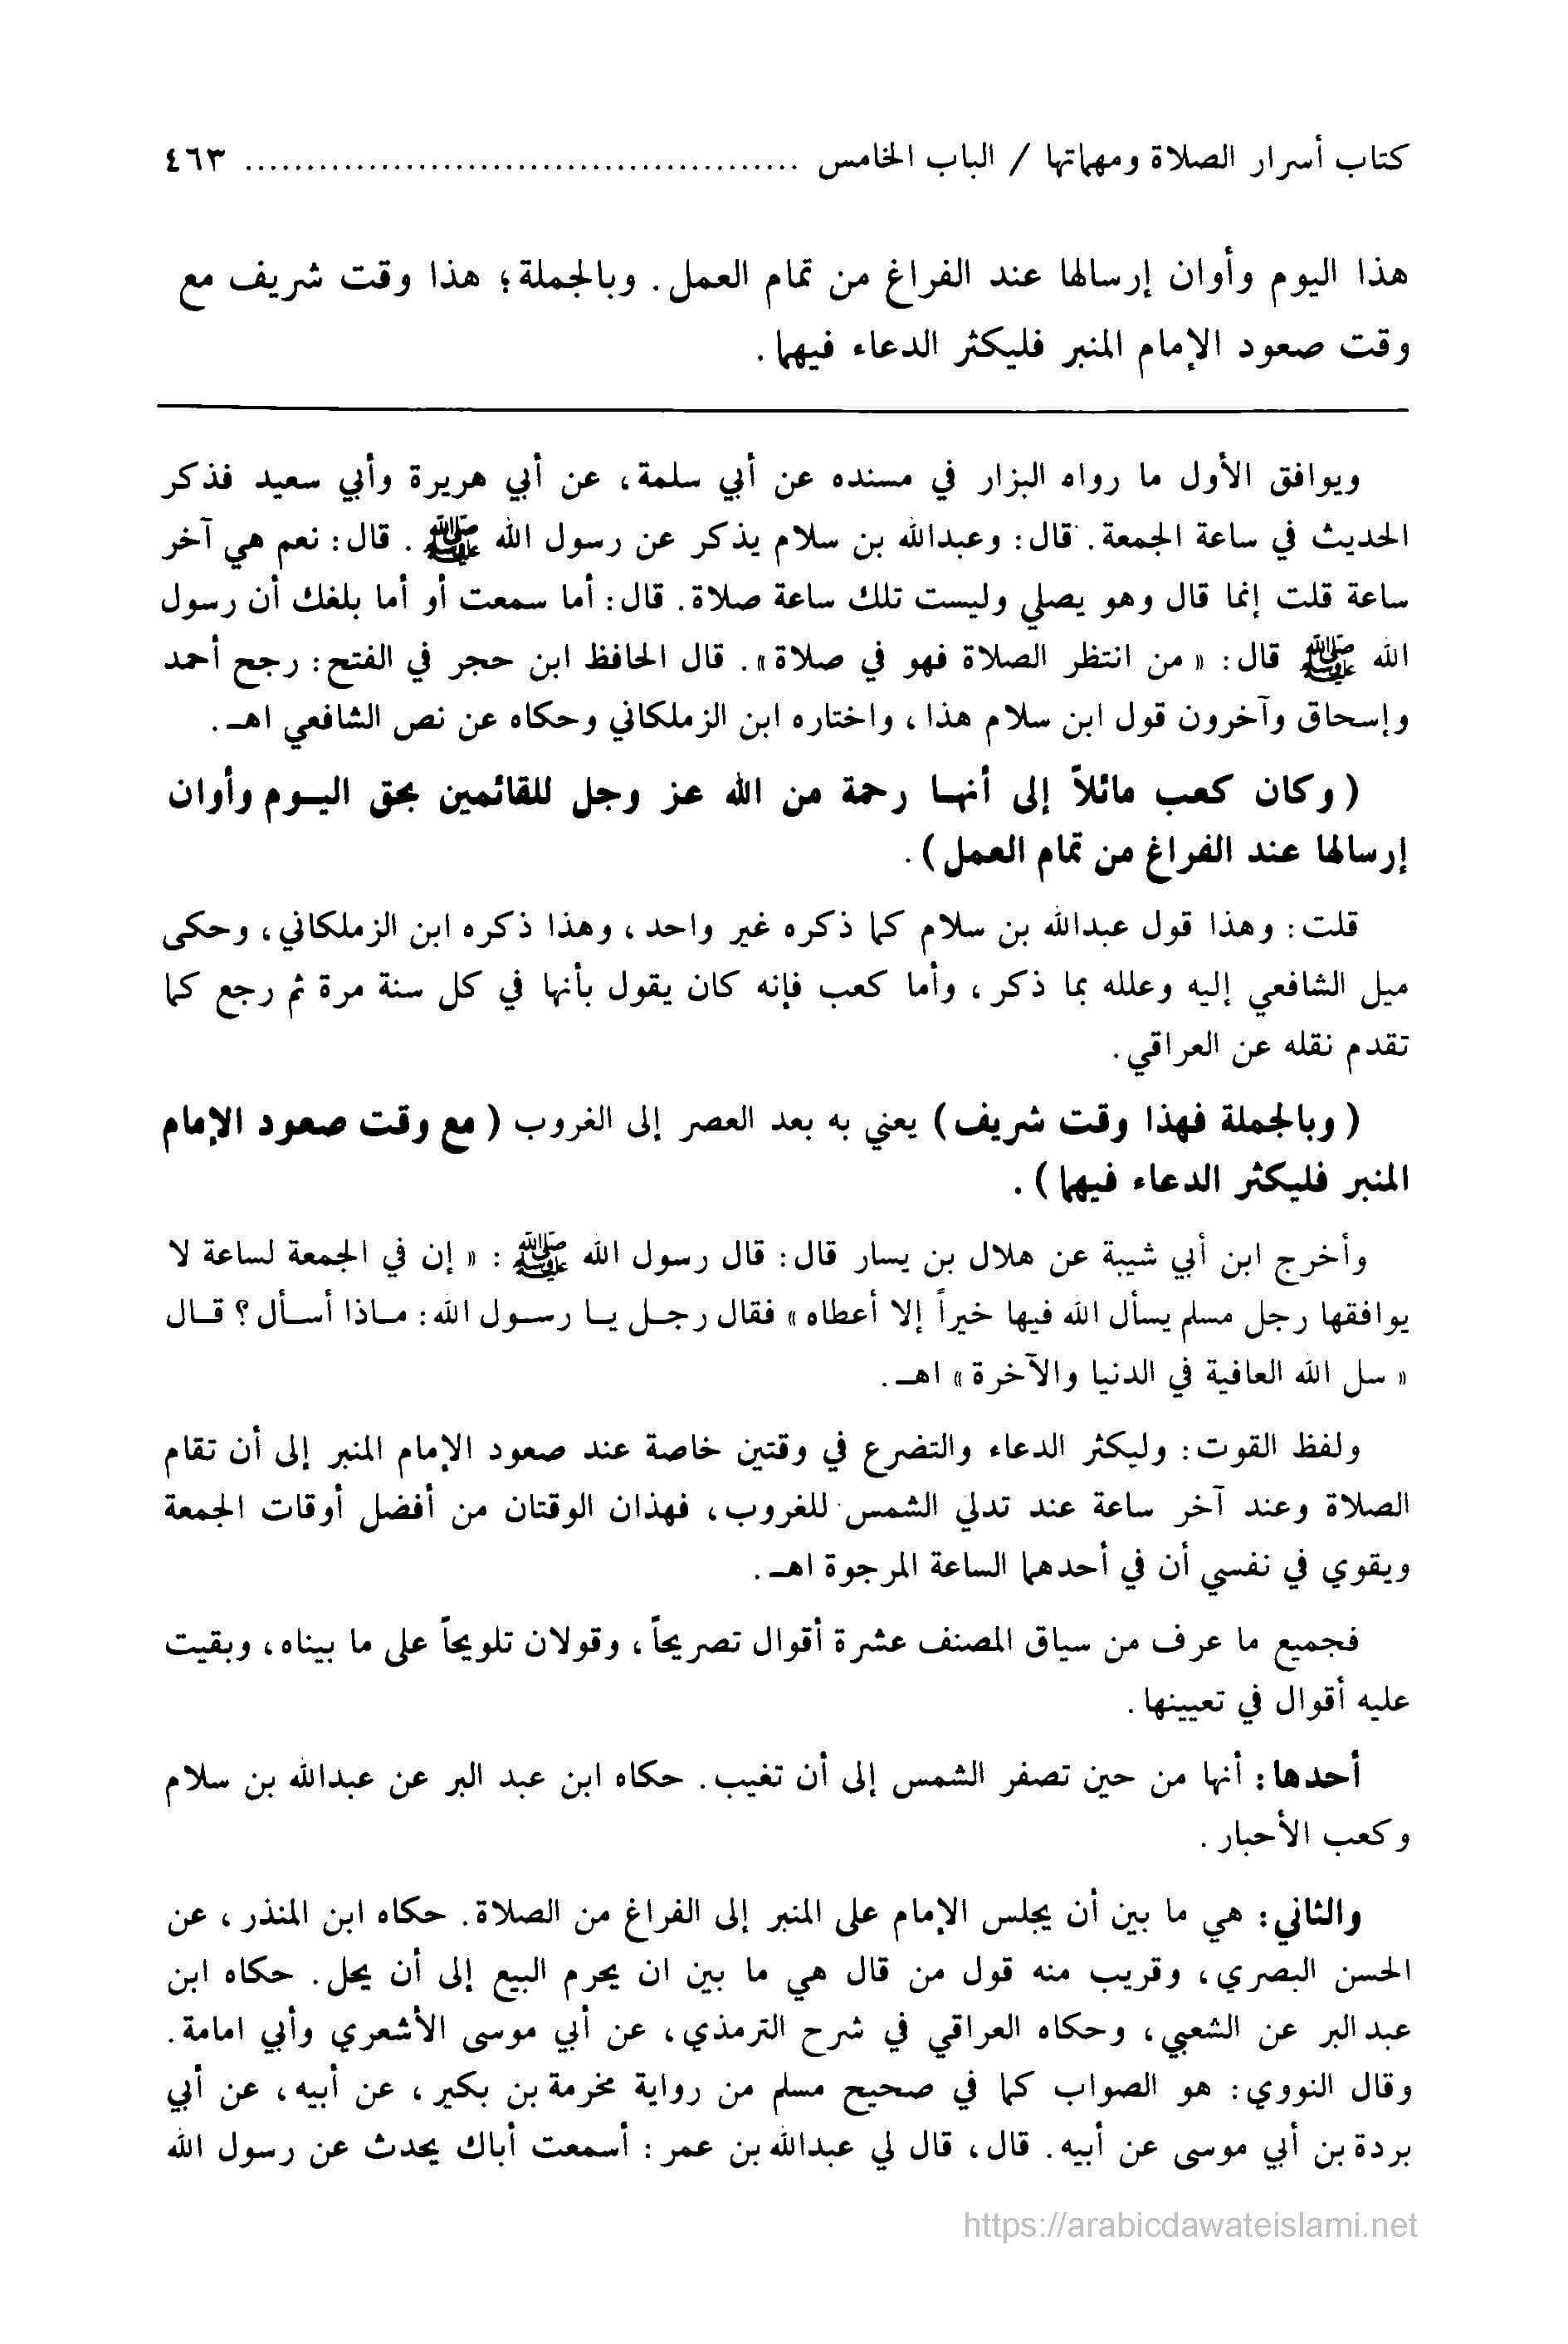 كتاب أسرار الصلاة ومهماتها / الباب الخامس ............................................. ٤٦٣
هذا اليوم وأوان إرسالها عند الفراغ من تمام العمل. وبالجملة؛ هذا وقت شريف مع
وقت صعود الإمام المنبر فليكثر الدعاء فيهما.
ويوافق الأول ما رواه البزار في مسنده عن أبي سلمة، عن أبي هريرة وأبي سعيد فذكر
الحديث في ساعة الجمعة. قال: وعبدالله بن سلام يذكر عن رسول الله ﷺ. قال: نعم هي آخر
ساعة قلت إنما قال وهو يصلي وليست تلك ساعة صلاة. قال: أما سمعت أو أما بلغك أن رسول
الله ﷺ قال: « من انتظر الصلاة فهو في صلاة». قال الحافظ ابن حجر في الفتح: رجح أحمد
وإسحاق وآخرون قول ابن سلام هذا، واختاره ابن الزملكاني وحكاه عن نص الشافعي اهـ.
( وكان كعب مائلاً إلى أنهـا رحمة من الله عز وجل للقائمين بحق اليـوم وأوان
إرسالها عند الفراغ من تمام العمل).
قلت: وهذا قول عبدالله بن سلام كما ذكره غير واحد، وهذا ذكره ابن الزملكاني، وحكى
ميل الشافعي إليه وعلله بما ذكر، وأما كعب فإنه كان يقول بأنها في كل سنة مرة ثم رجع كما
تقدم نقله عن العراقي.
( وبالجملة فهذا وقت شريف) يعني به بعد العصر إلى الغروب ( مع وقت صعود الإمام
المنبر فليكثر الدعاء فيهما).
وأخرج ابن أبي شيبة عن هلال بن يسار قال: قال رسول الله ﷺ: « إن في الجمعة لساعة لا
يوافقها رجل مسلم يسأل الله فيها خيراً إلا أعطاه» فقال رجـل يـا رسـول الله: مـاذا أسـأل؟ قـال
« سل الله العافية في الدنيا والآخرة» اهـ.
ولفظ القوت: وليكثر الدعاء والتضرع في وقتين خاصة عند صعود الإمام المنبر إلى أن تقام
الصلاة وعند آخر ساعة عند تدلي الشمس للغروب، فهذان الوقتان من أفضل أوقات الجمعة
ويقوي في نفسي أن في أحدهما الساعة المرجوة اهـ.
فجميع ما عرف من سياق المصنف عشرة أقوال تصريحاً، وقولان تلويحاً على ما بيناه، وبقيت
عليه أقوال في تعيينها.
أحدها: أنها من حين تصفر الشمس إلى أن تغيب. حكاه ابن عبد البر عن عبدالله بن سلام
وكعب الأحبار.
والثاني: هي ما بين أن يجلس الإمام على المنبر إلى الفراغ من الصلاة. حكاه ابن المنذر، عن
الحسن البصري، وقريب منه قول من قال هي ما بين ان يحرم البيع إلى أن يحل. حكاه ابن
عبد البر عن الشعبي، وحكاه العراقي في شرح الترمذي، عن أبي موسى الأشعري وأبي امامة.
وقال النووي: هو الصواب كما في صحيح مسلم من رواية مخرمة بن بكير، عن أبيه، عن أبي
بردة بن أبي موسى عن أبيه. قال، قال لي عبدالله بن عمر: أسمعت أباك يحدث عن رسول الله
https://arabicdawateislami.net